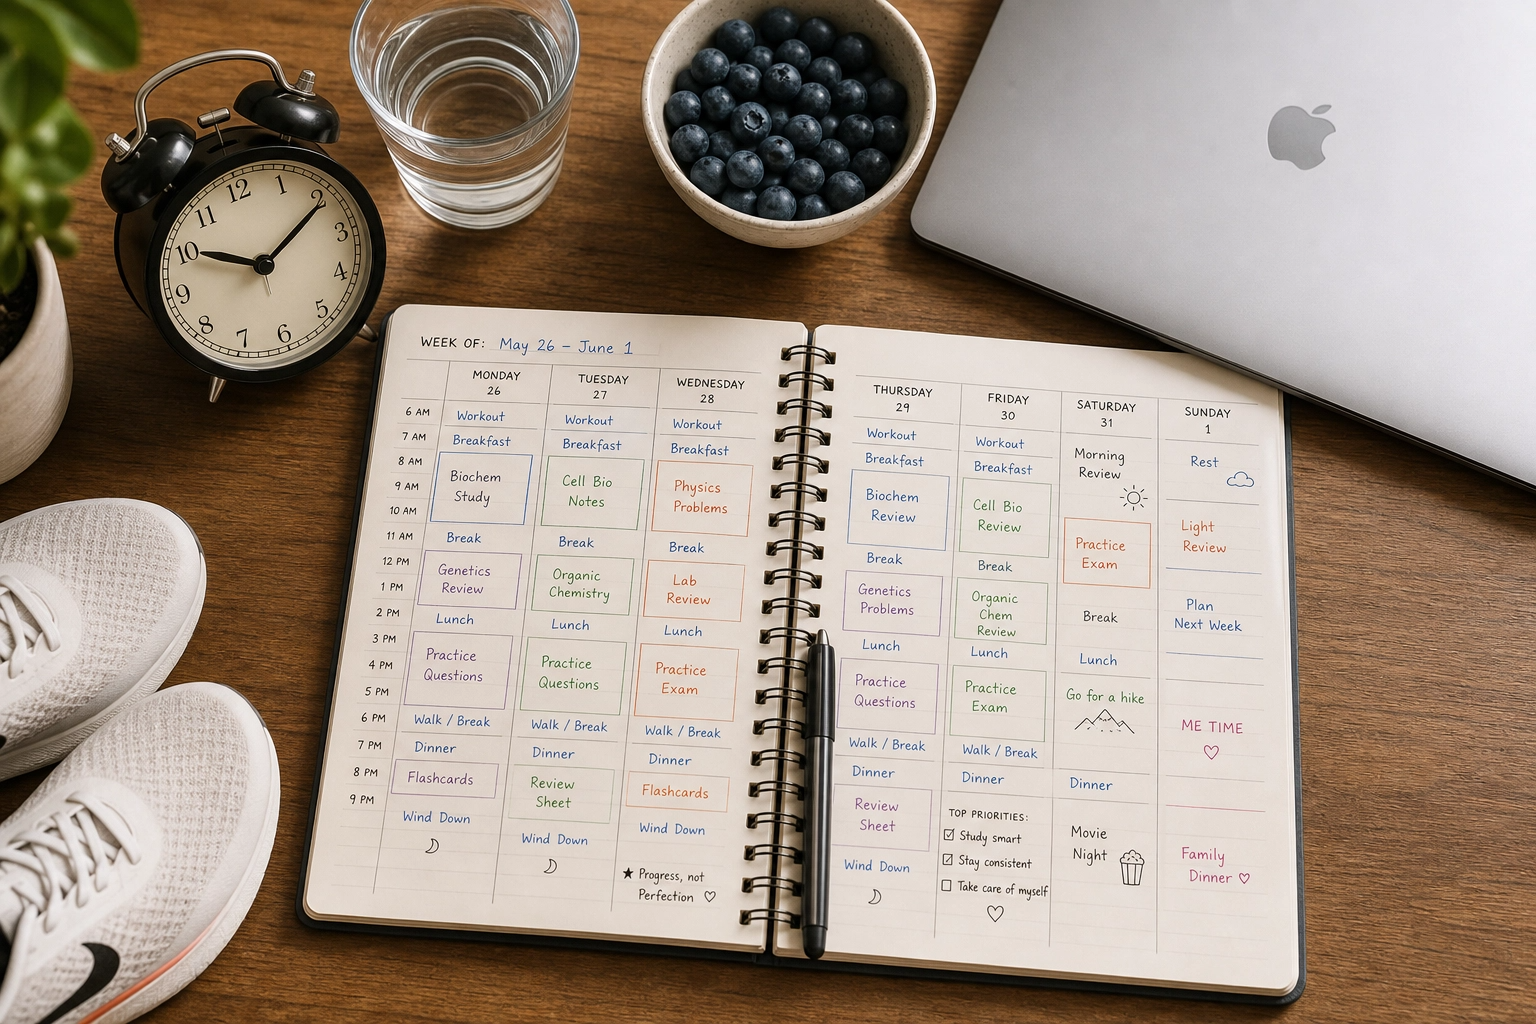 12
1
2
3
4
5
6
7
8
9
10
11
WEEK OF: May 26 – June 1
MONDAY
26
TUESDAY
27
WEDNESDAY
28
6 AM
7 AM
8 AM
9 AM
10 AM
11 AM
12 PM
1 PM
2 PM
3 PM
4 PM
5 PM
6 PM
7 PM
8 PM
9 PM
Workout
Breakfast
Biochem
Study
Break
Genetics
Review
Lunch
Practice
Questions
Walk / Break
Dinner
Flashcards
Wind Down
Workout
Breakfast
Cell Bio
Notes
Break
Organic
Chemistry
Lunch
Practice
Questions
Walk / Break
Dinner
Review
Sheet
Wind Down
Workout
Breakfast
Physics
Problems
Break
Lab
Review
Lunch
Practice
Exam
Walk / Break
Dinner
Flashcards
Wind Down
★ Progress, not
Perfection ♡
THURSDAY
29
FRIDAY
30
SATURDAY
31
SUNDAY
1
Workout
Breakfast
Biochem
Review
Break
Genetics
Problems
Lunch
Practice
Questions
Walk / Break
Dinner
Review
Sheet
Wind Down
Workout
Breakfast
Cell Bio
Review
Break
Organic
Chem
Review
Lunch
Practice
Exam
Walk / Break
Dinner
TOP PRIORITIES:
☑ Study smart
☑ Stay consistent
☐ Take care of myself
♡
Morning
Review
Practice
Exam
Break
Lunch
Go for a hike
Dinner
Movie
Night
Rest
Light
Review
Plan
Next Week
ME TIME
♡
Family
Dinner ♡